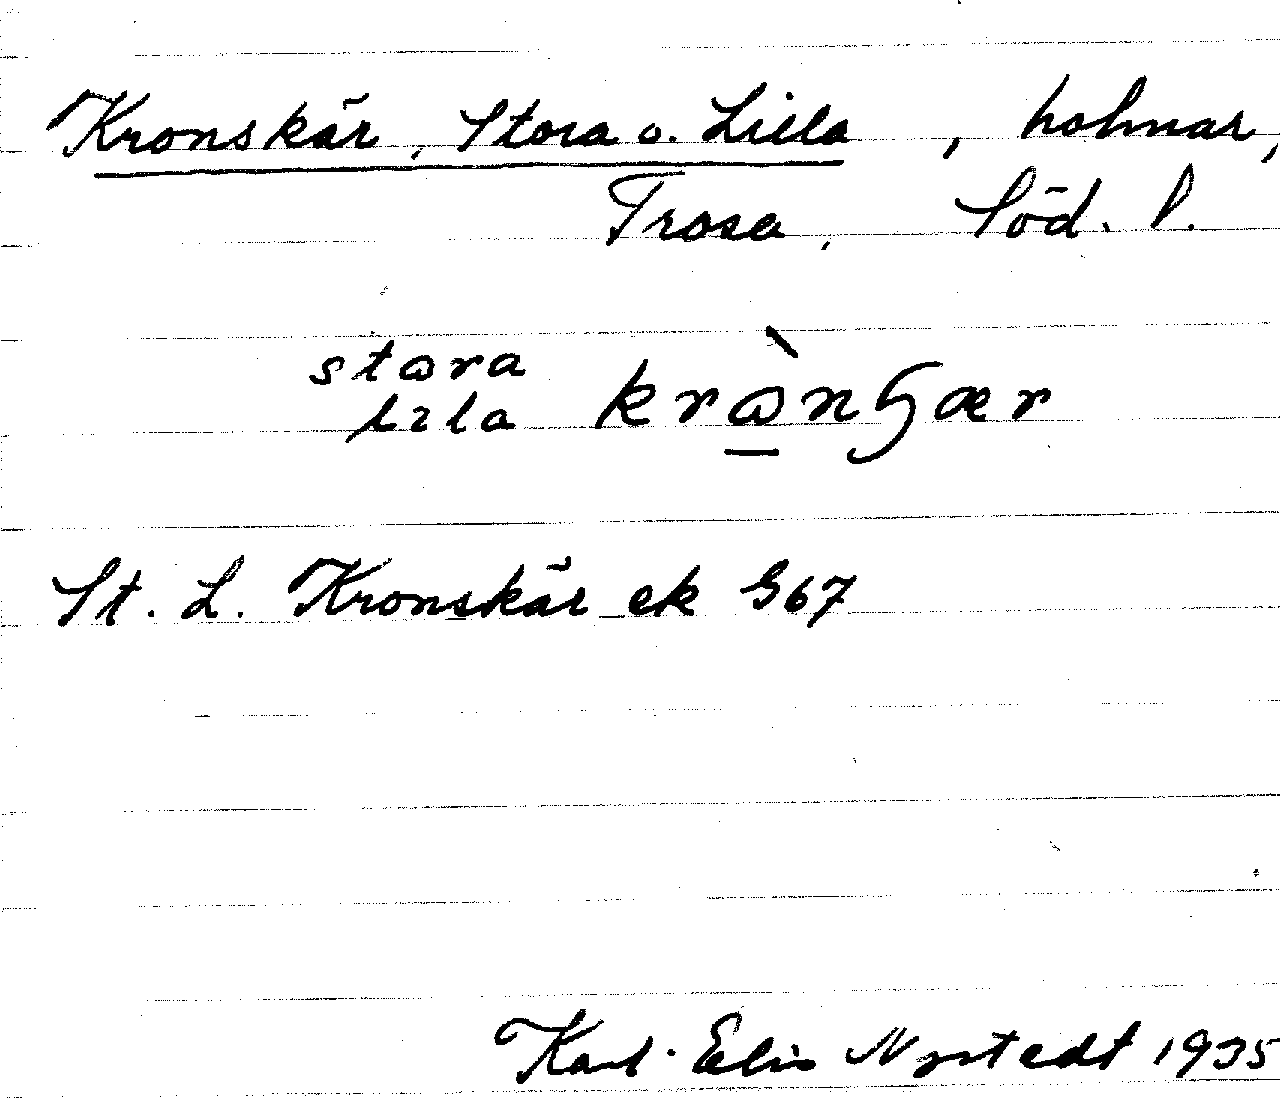 Kronskär, Stora o. Lilla, holmar,
Trosa, Söd. l.
stora
lila krɷ̀nɧær
St. L. Kronskär ek G67
Karl-Elis Nystedt 1935